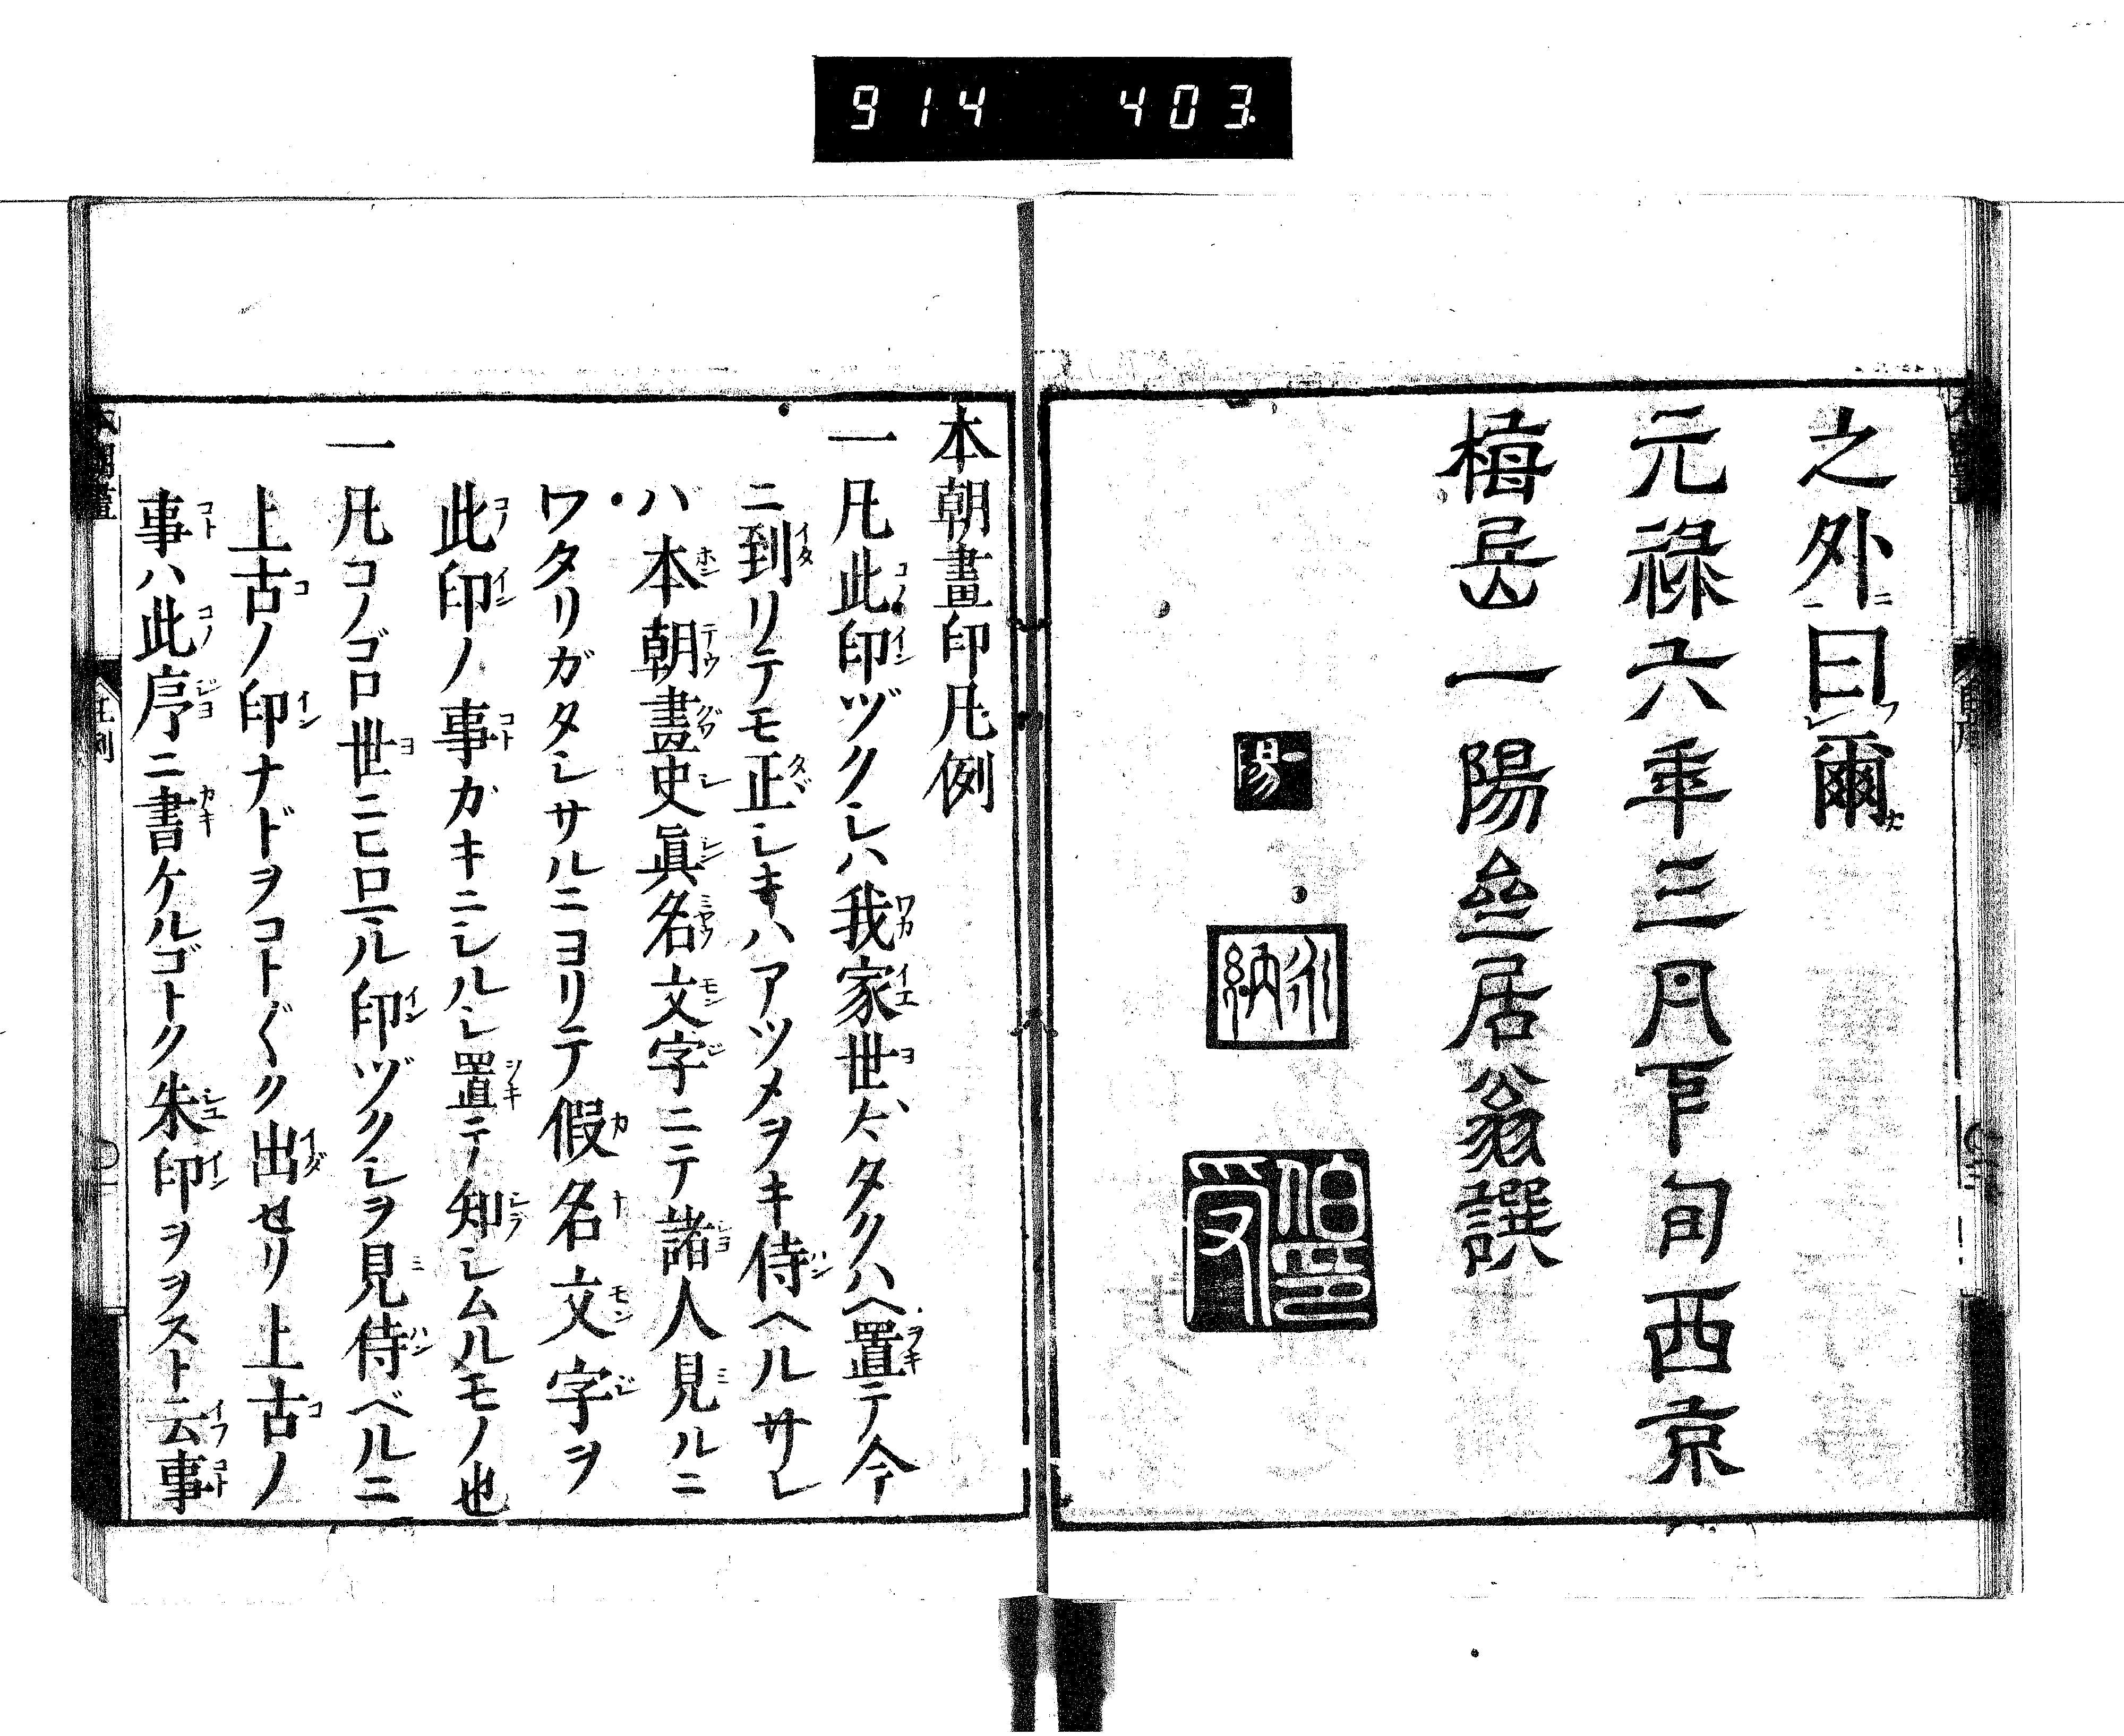 914 403.
之外曰爾
元祿六年三月下旬西京
梅岳一陽齋居翁譔
本朝畫印凡例
一凡此印ヅクシハ我家世〻タクハヘ置テ今
ニ到リテモ正シキハアツメヲキ侍ヘルサレ
バ本朝畫史眞名文字ニテ諸人見ルニ
ワタリガタシサルニヨリテ假名文字ヲ
此印ノ事カキニシルシ置テ知シムルモノ也
一凡コノゴロ世ニヒロマル印ヅクシヲ見侍ベルニ
上古ノ印ナドヲコト〲ク出セリ上古ノ
事ハ此序ニ書ケルゴトク朱印ヲヲスト云事